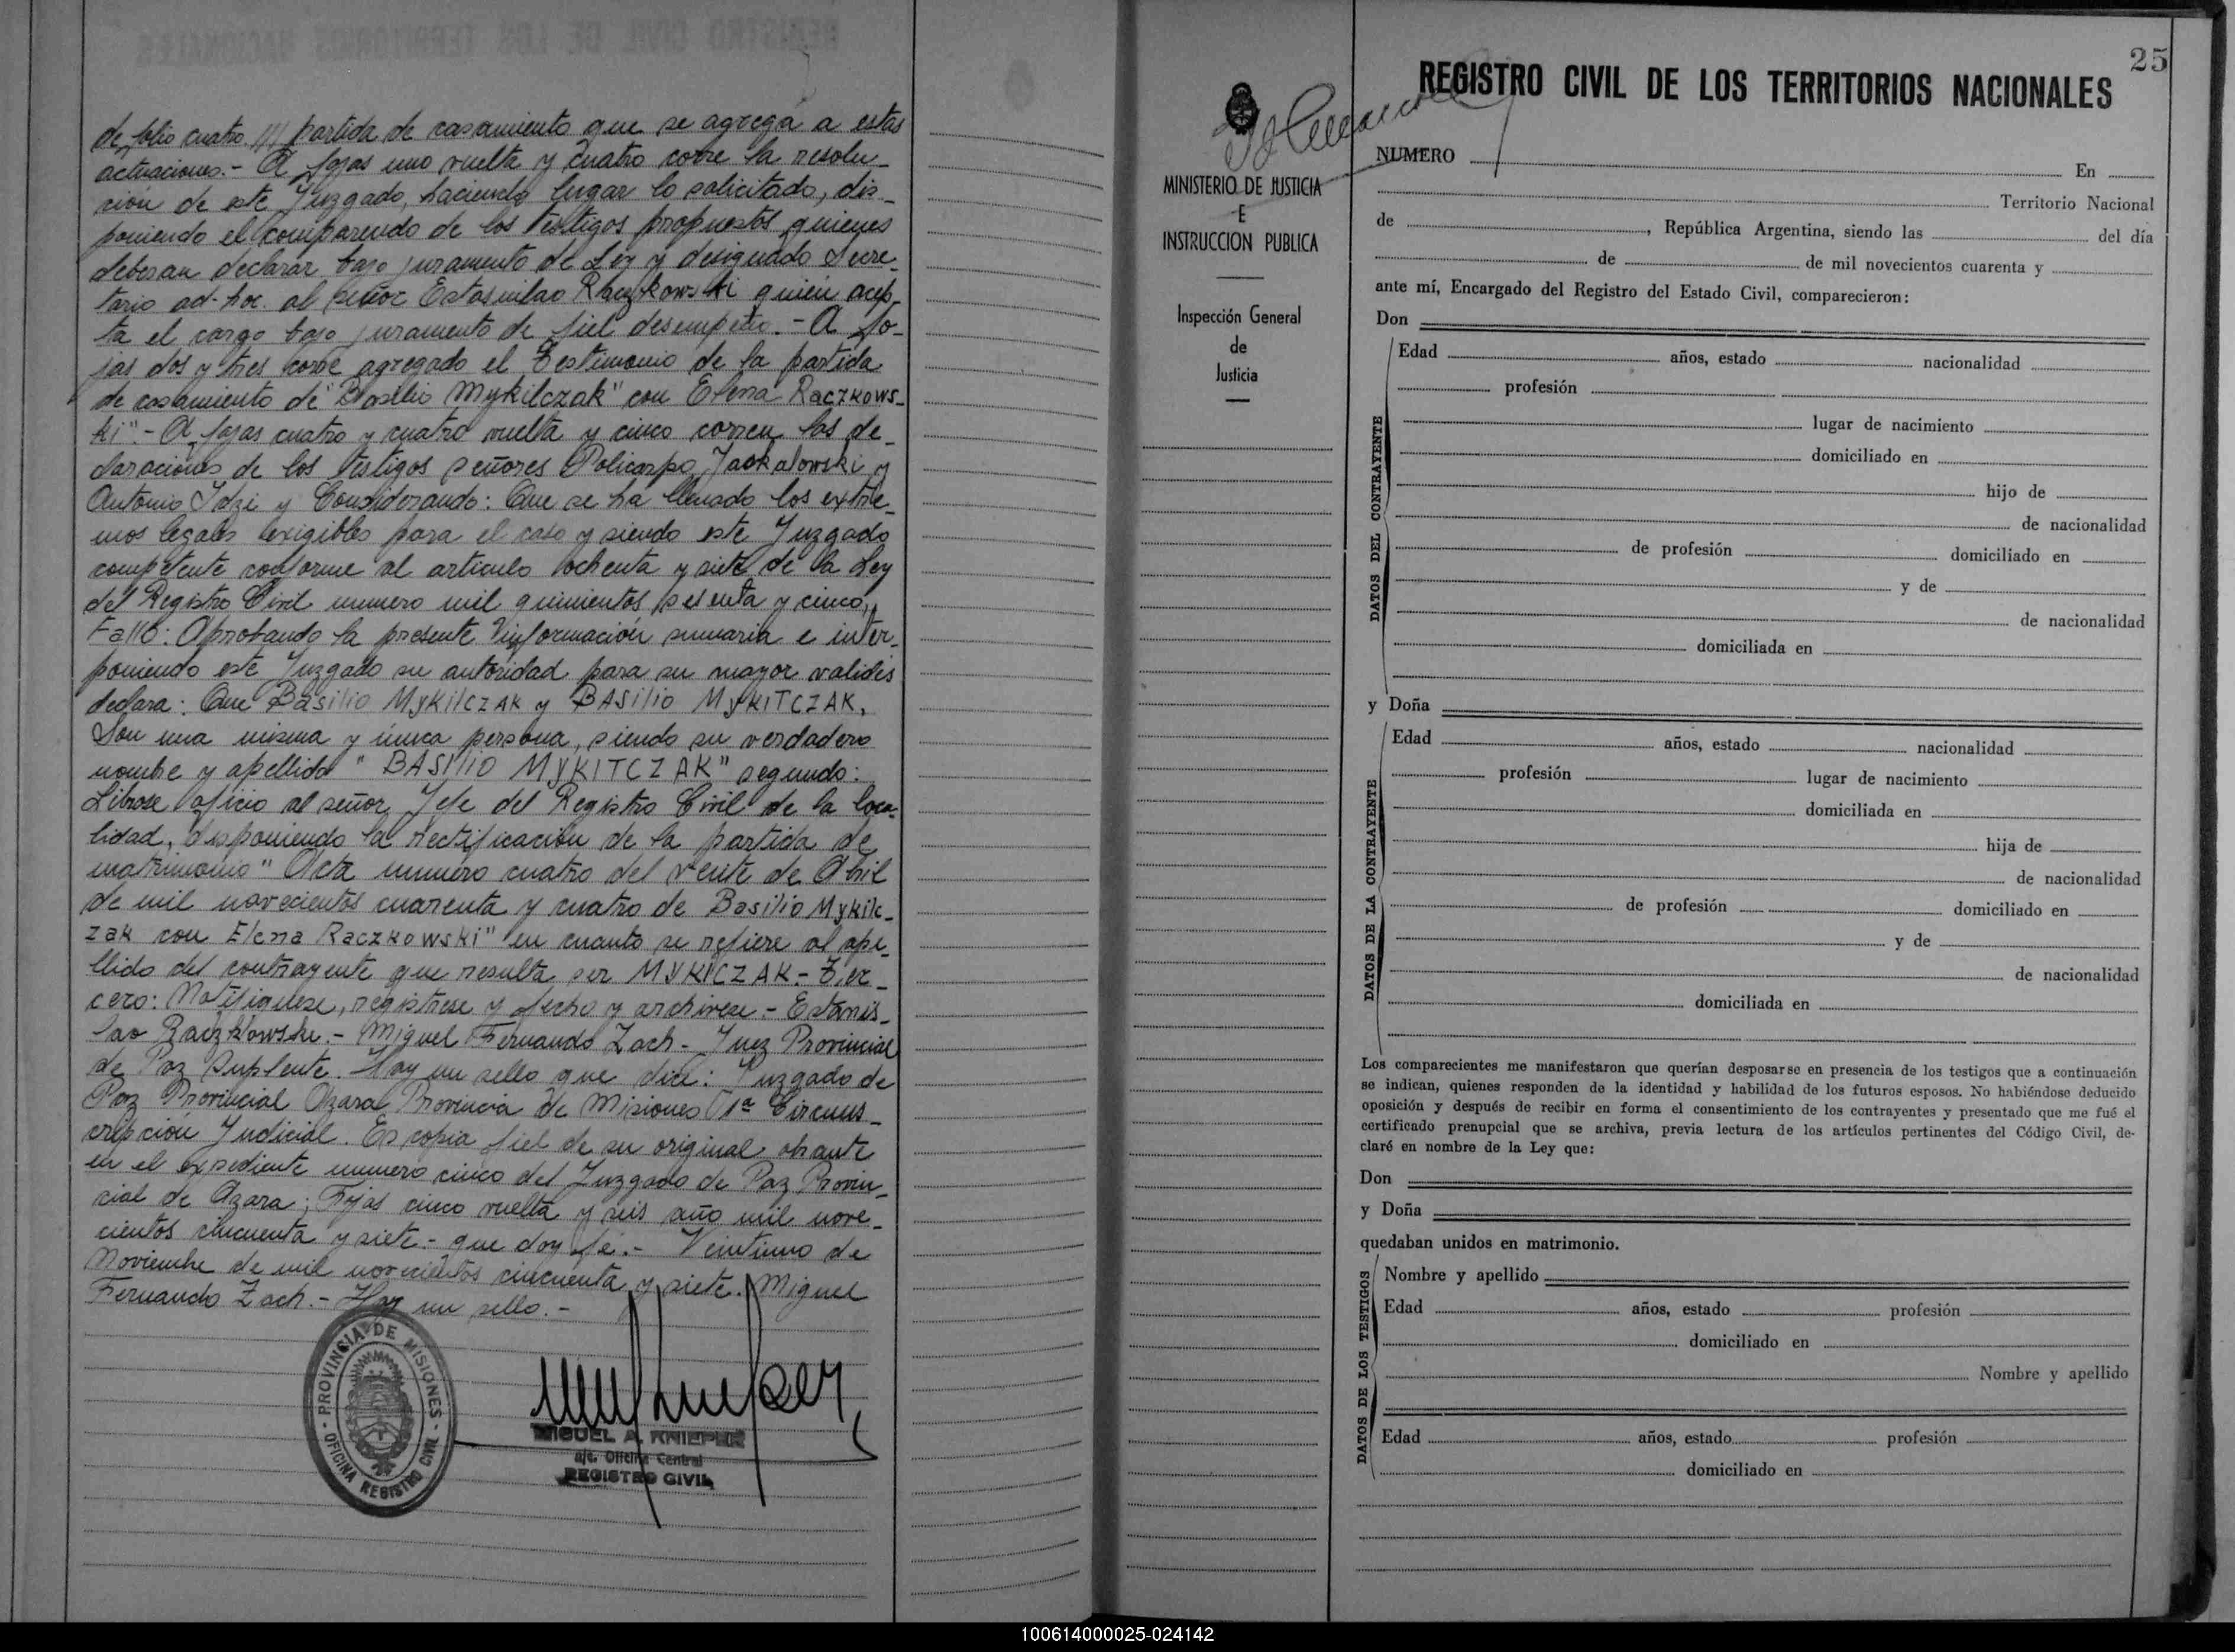 de folio cuatro /// partida de casamiento que se agrega a estas
actuaciones.- A fojas uno vuelta y cuatro corre la resolu-
ción de este Juzgado, haciendo lugar lo solicitado, dis-
poniendo el comparendo de los testigos propuestos quienes
deberan declarar bajo juramento de Ley y designado Secre-
tario ad-hoc. al señor Estasnilao Raczkowski quien acep-
ta el cargo bajo juramento de fiel desempeño. - A fo-
jas dos y tres corre agregado el Testimonio de la partida
de casamiento de "Basilio Mykilczak" con Elena Raczkows-
ki".- A fojas cuatro y cuatro vuelta y cinco corren las de-
claraciones de los testigos señores Policarpo Jaskalowski y
Antonio y Considerando: Que se ha llenado los extre-
mos legales exigibles para el caso y siendo este Juzgado
competente conforme al articulo ochenta y siete de la Ley
del Registro Civil numero mil quinientos sesenta y cinco,
Fallo: Aprobando la presente información sumaria e inter-
poniendo este Juzgado su autoridad para su mayor valides
declara: Que Basilio MykilczAK y BASilio MyKITCZAK,
Son una misma y única persona, siendo su verdadero
nombre y apellido "BASIliO MYKITCZAK" segundo:
Librese oficio al señor Jefe del Registro Civil de la loca-
lidad, disponiendo la rectificación de la partida de
matrimonio" Acta numero cuatro del veite de Abril
de mil novecientos cuarenta y cuatro de Basilio Mykilc-
zak con Elena Raczkowski" en cuanto se refiere al ape-
llido del contrayente que resulta ser MYKICZAK.- Ter-
cero: Notifiquese, registrese y fecho y archivese.- Estanis-
lao Raczkowski.- Miguel Fernando Zach - Juez Provincial
de Paz Suplente. Hay un sello que dice: Juzgado de
Paz Provincial Azara Provincia de Misiones 1ª Circuns-
cripción Judicial. Es copia fiel de su original obrante
en el expediente numero cinco del Juzgado de Paz Provin-
cial de Azara; Fojas cinco vuelta y seis año mil nove-
cientos cincuenta y siete.- que doy fé.- Veintiuno de
Noviembre de mil novecientos cincuenta y siete. Miguel
Fernando Zach.- Hay un sello.-
PROVINCIA DE MISIONES - OFICINA REGISTRO CIVIL -
MIGUEL A. KNIEPER
a/c. Oficina Central
REGISTRO CIVIL
25
REGISTRO CIVIL DE LOS TERRITORIOS NACIONALES
MINISTERIO DE JUSTICIA
E
INSTRUCCION PUBLICA
Inspección General
de
Justicia
NUMERO
En
Territorio Nacional
de , República Argentina, siendo las del día
de de mil novecientos cuarenta y
ante mí, Encargado del Registro del Estado Civil, comparecieron:
Don
DATOS DEL CONTRAYENTE
Edad años, estado nacionalidad
profesión
lugar de nacimiento
domiciliado en
hijo de
de nacionalidad
de profesión domiciliado en
y de
de nacionalidad
domiciliada en
y Doña
DATOS DE LA CONTRAYENTE
Edad años, estado nacionalidad
profesión lugar de nacimiento
domiciliada en
hija de
de nacionalidad
de profesión domiciliado en
y de
de nacionalidad
domiciliada en
Los comparecientes me manifestaron que querían desposarse en presencia de los testigos que a continuación
se indican, quienes responden de la identidad y habilidad de los futuros esposos. No habiéndose deducido
oposición y después de recibir en forma el consentimiento de los contrayentes y presentado que me fué el
certificado prenupcial que se archiva, previa lectura de los artículos pertinentes del Código Civil, de-
claré en nombre de la Ley que:
Don
y Doña
quedaban unidos en matrimonio.
DATOS DE LOS TESTIGOS
Nombre y apellido
Edad años, estado profesión
domiciliado en
Nombre y apellido
Edad años, estado profesión
domiciliado en
100614000025-024142